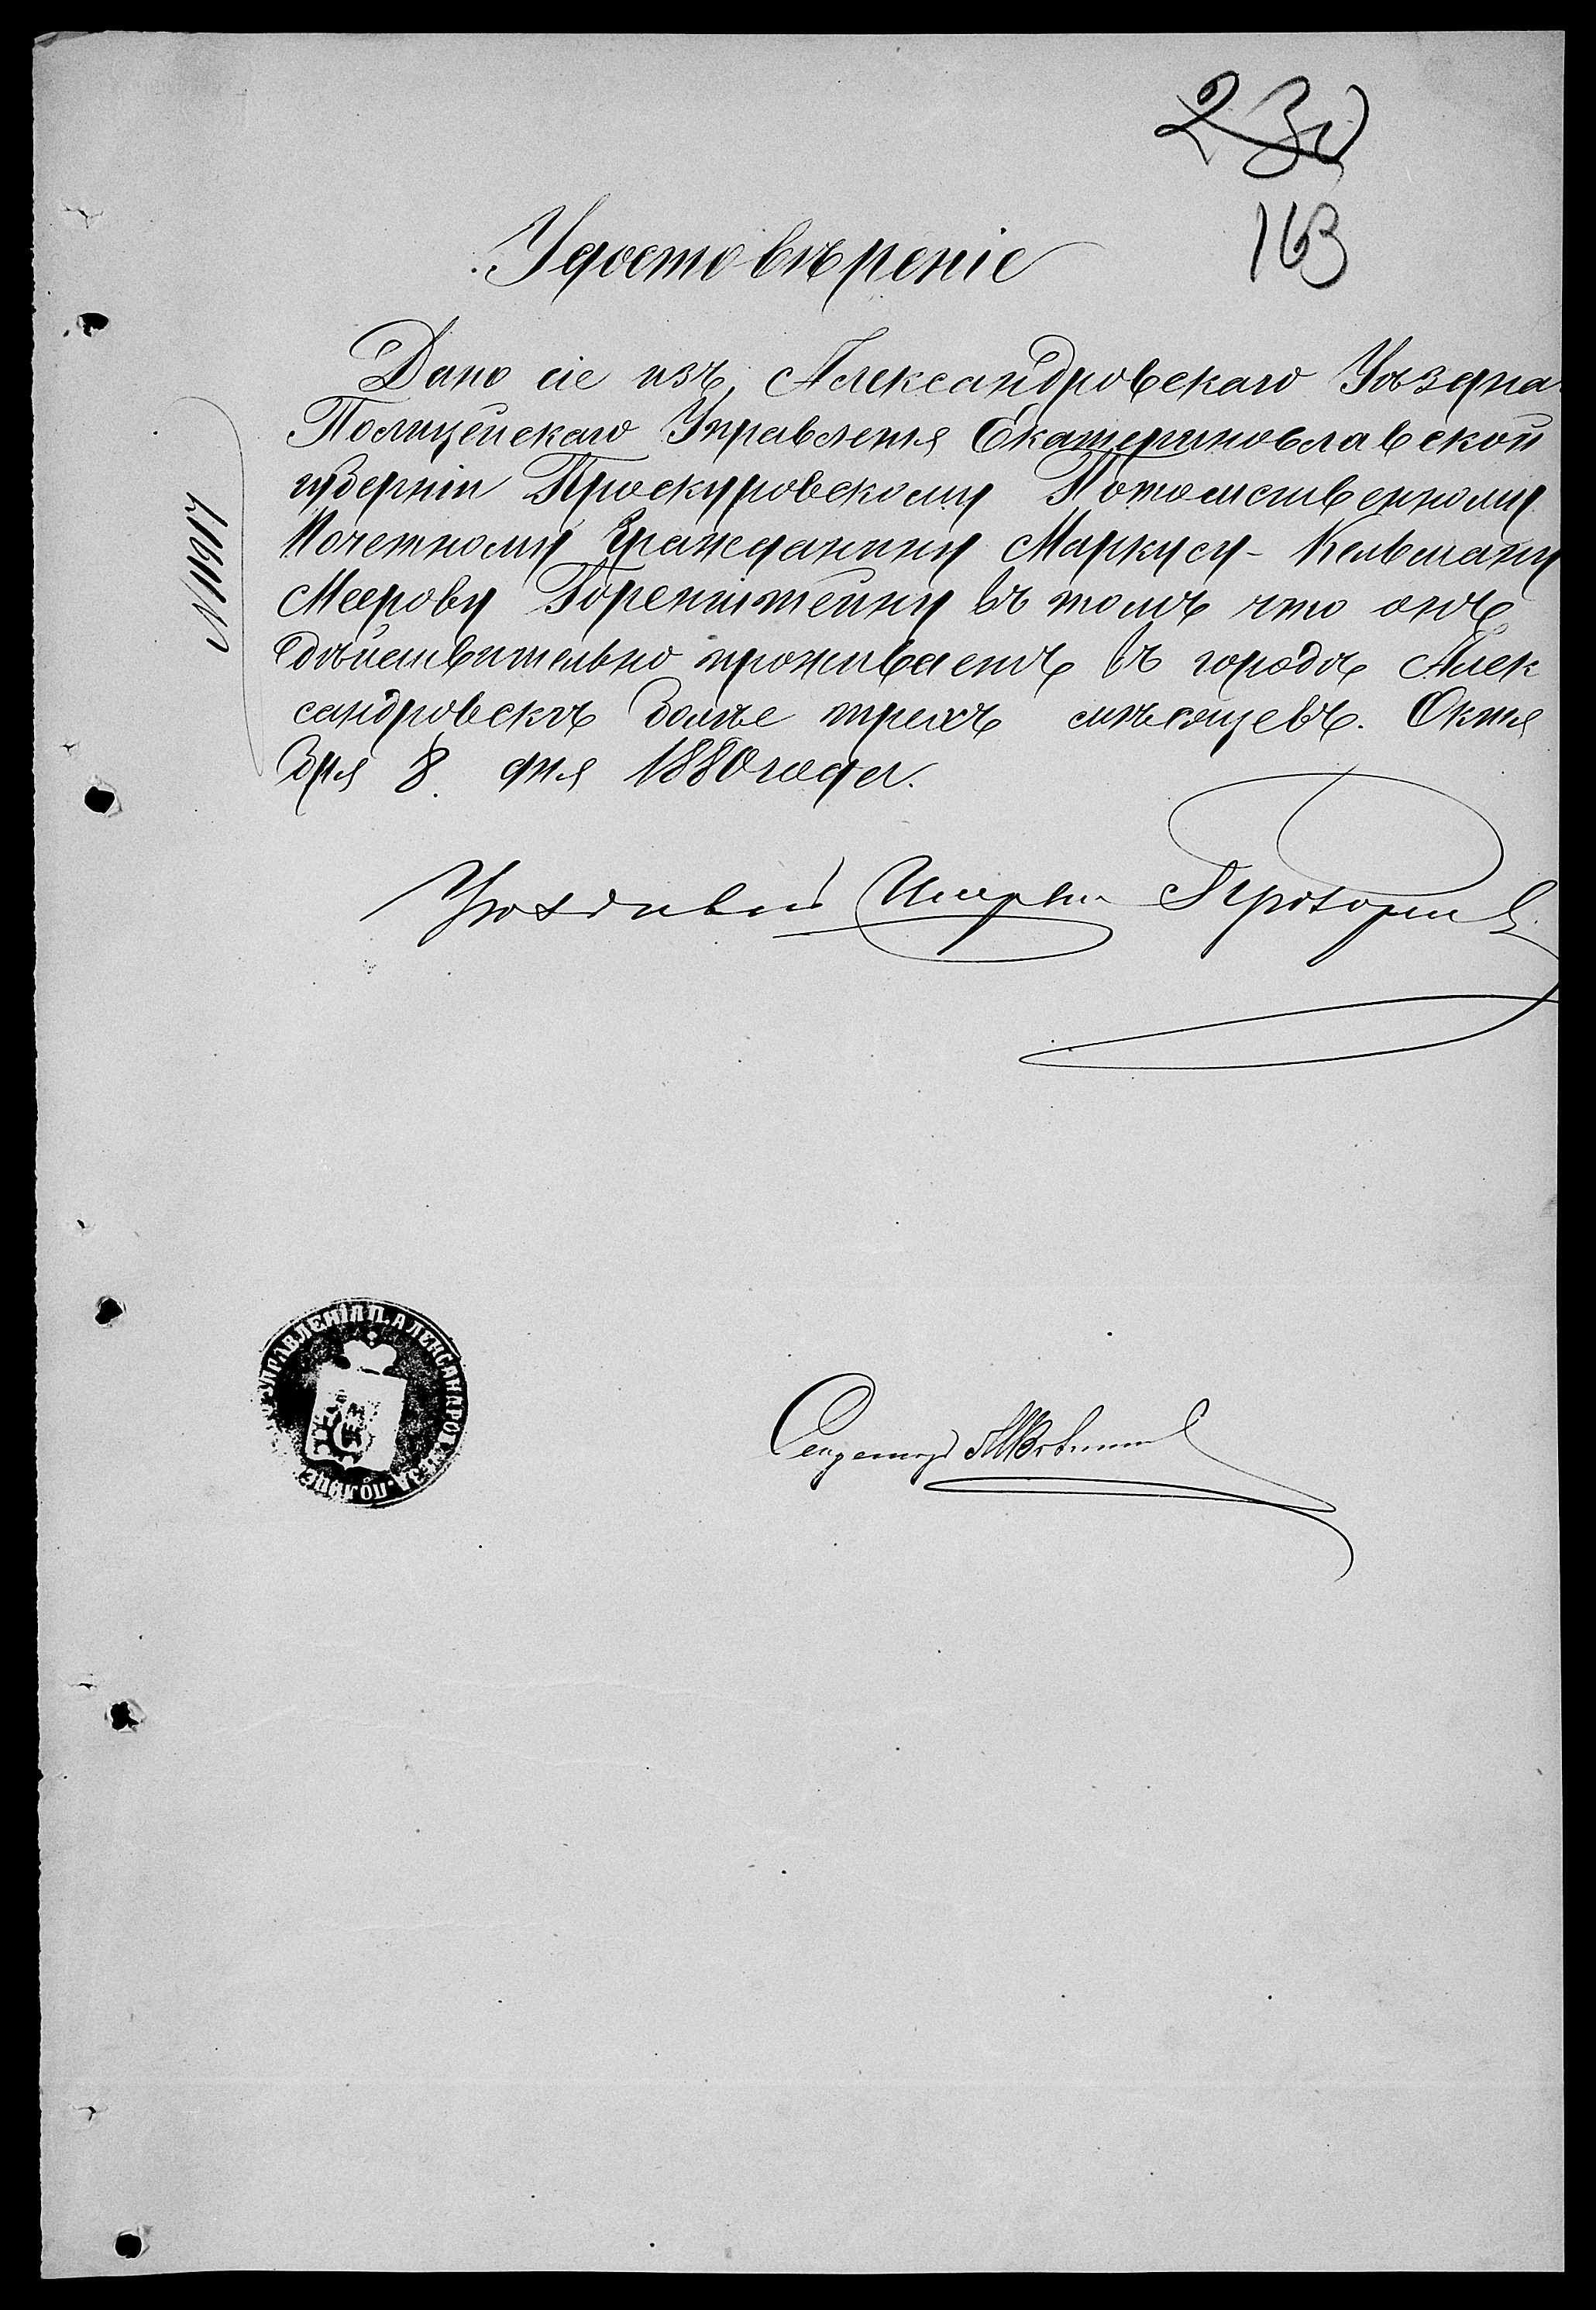 230
163
Удостовѣреніе
Дано сіе изъ Александровскаго Уѣздна
Полицейскаго Управленія Екатеринославской
губерніи Проскуровскому Потомственному
Почетному Гражданину Маркусу - Кельману
Меерову Горенштейну въ томъ что онъ
дѣйствительно проживаетъ въ городѣ Алек
сандровскѣ болѣе трехъ мѣсяцевъ. Октя
бря 8. дня 1880 года.
N 11917
Уѣздный
Секретарь
УПРАВЛЕНІЯ П. АЛЕКСАНДРОВ УѢЗД. ПОЛИЦЕ